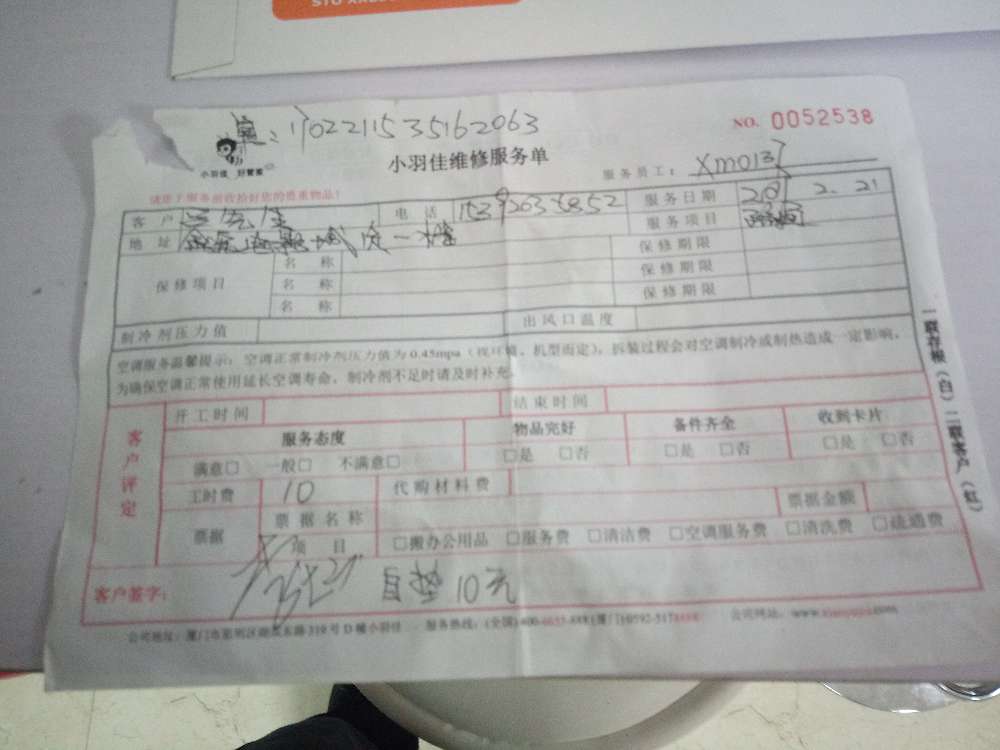 1702211535162063
NO. 0052538
小羽佳 好管家
小羽佳维修服务单
服务员工: Xm013
请您于服务前收拾好您的贵重物品!
客户 电话 服务日期 2.21
地址 服务项目
保修项目 名称 保修期限
名称 保修期限
名称 保修期限
制冷剂压力值 出风口温度
空调服务温馨提示: 空调正常制冷剂压力值为0.45mpa (视环境、机型而定), 拆装过程会对空调制冷或制热造成一定影响,
为确保空调正常使用延长空调寿命, 制冷剂不足时请及时补充。
一联存根(白) 二联客户(红)
客户评定
开工时间 结束时间
服务态度 物品完好 备件齐全 收到卡片
满意□ 一般□ 不满意□ □是 □否 □是 □否 □是 □否
工时费 10 代购材料费
票据 票据名称 票据金额
项目 □搬办公用品 □服务费 □清洁费 □空调服务费 □清洗费 □疏通费
客户签字: 自垫10元
公司地址: 厦门市思明区 319号D幢小羽佳 服务热线: (全国)400- 厦门0592- 公司网址: www.